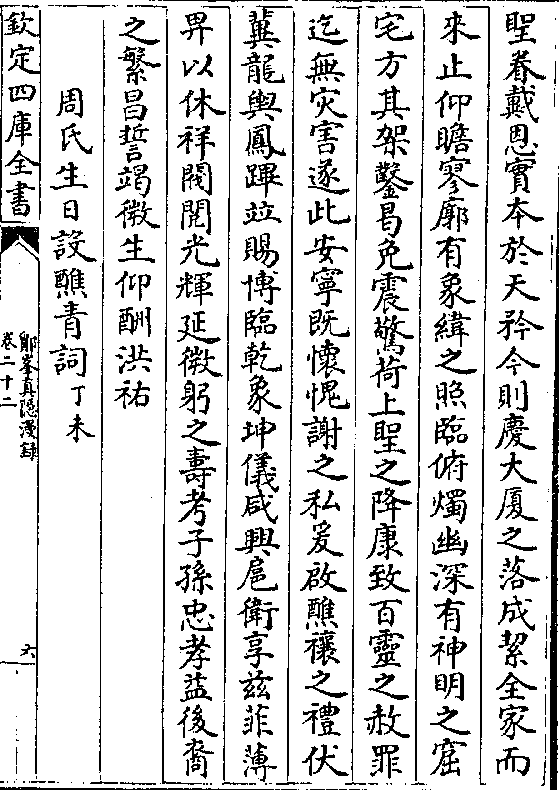 聖眷戴恩實本於天矜今則慶大厦之落成絜全家而
來止仰瞻寥廓有象緯之照臨俯燭幽深有神明之窟
宅方其架鑿曷免震驚荷上聖之降康致百靈之赦罪
迄無灾害遂此安寧既懷愧謝之私爰啟醮禳之禮伏
冀龍輿鳳蹕竝賜博臨乾象坤儀咸興扈衛享兹菲薄
畀以休祥閥閱光輝延微躬之壽考子孫忠孝益後裔
之繁昌誓竭微生仰酬洪祐
周氏生日設醮青詞丁未
欽定四庫全書
鄮峯真隱漫録
卷二十二
六